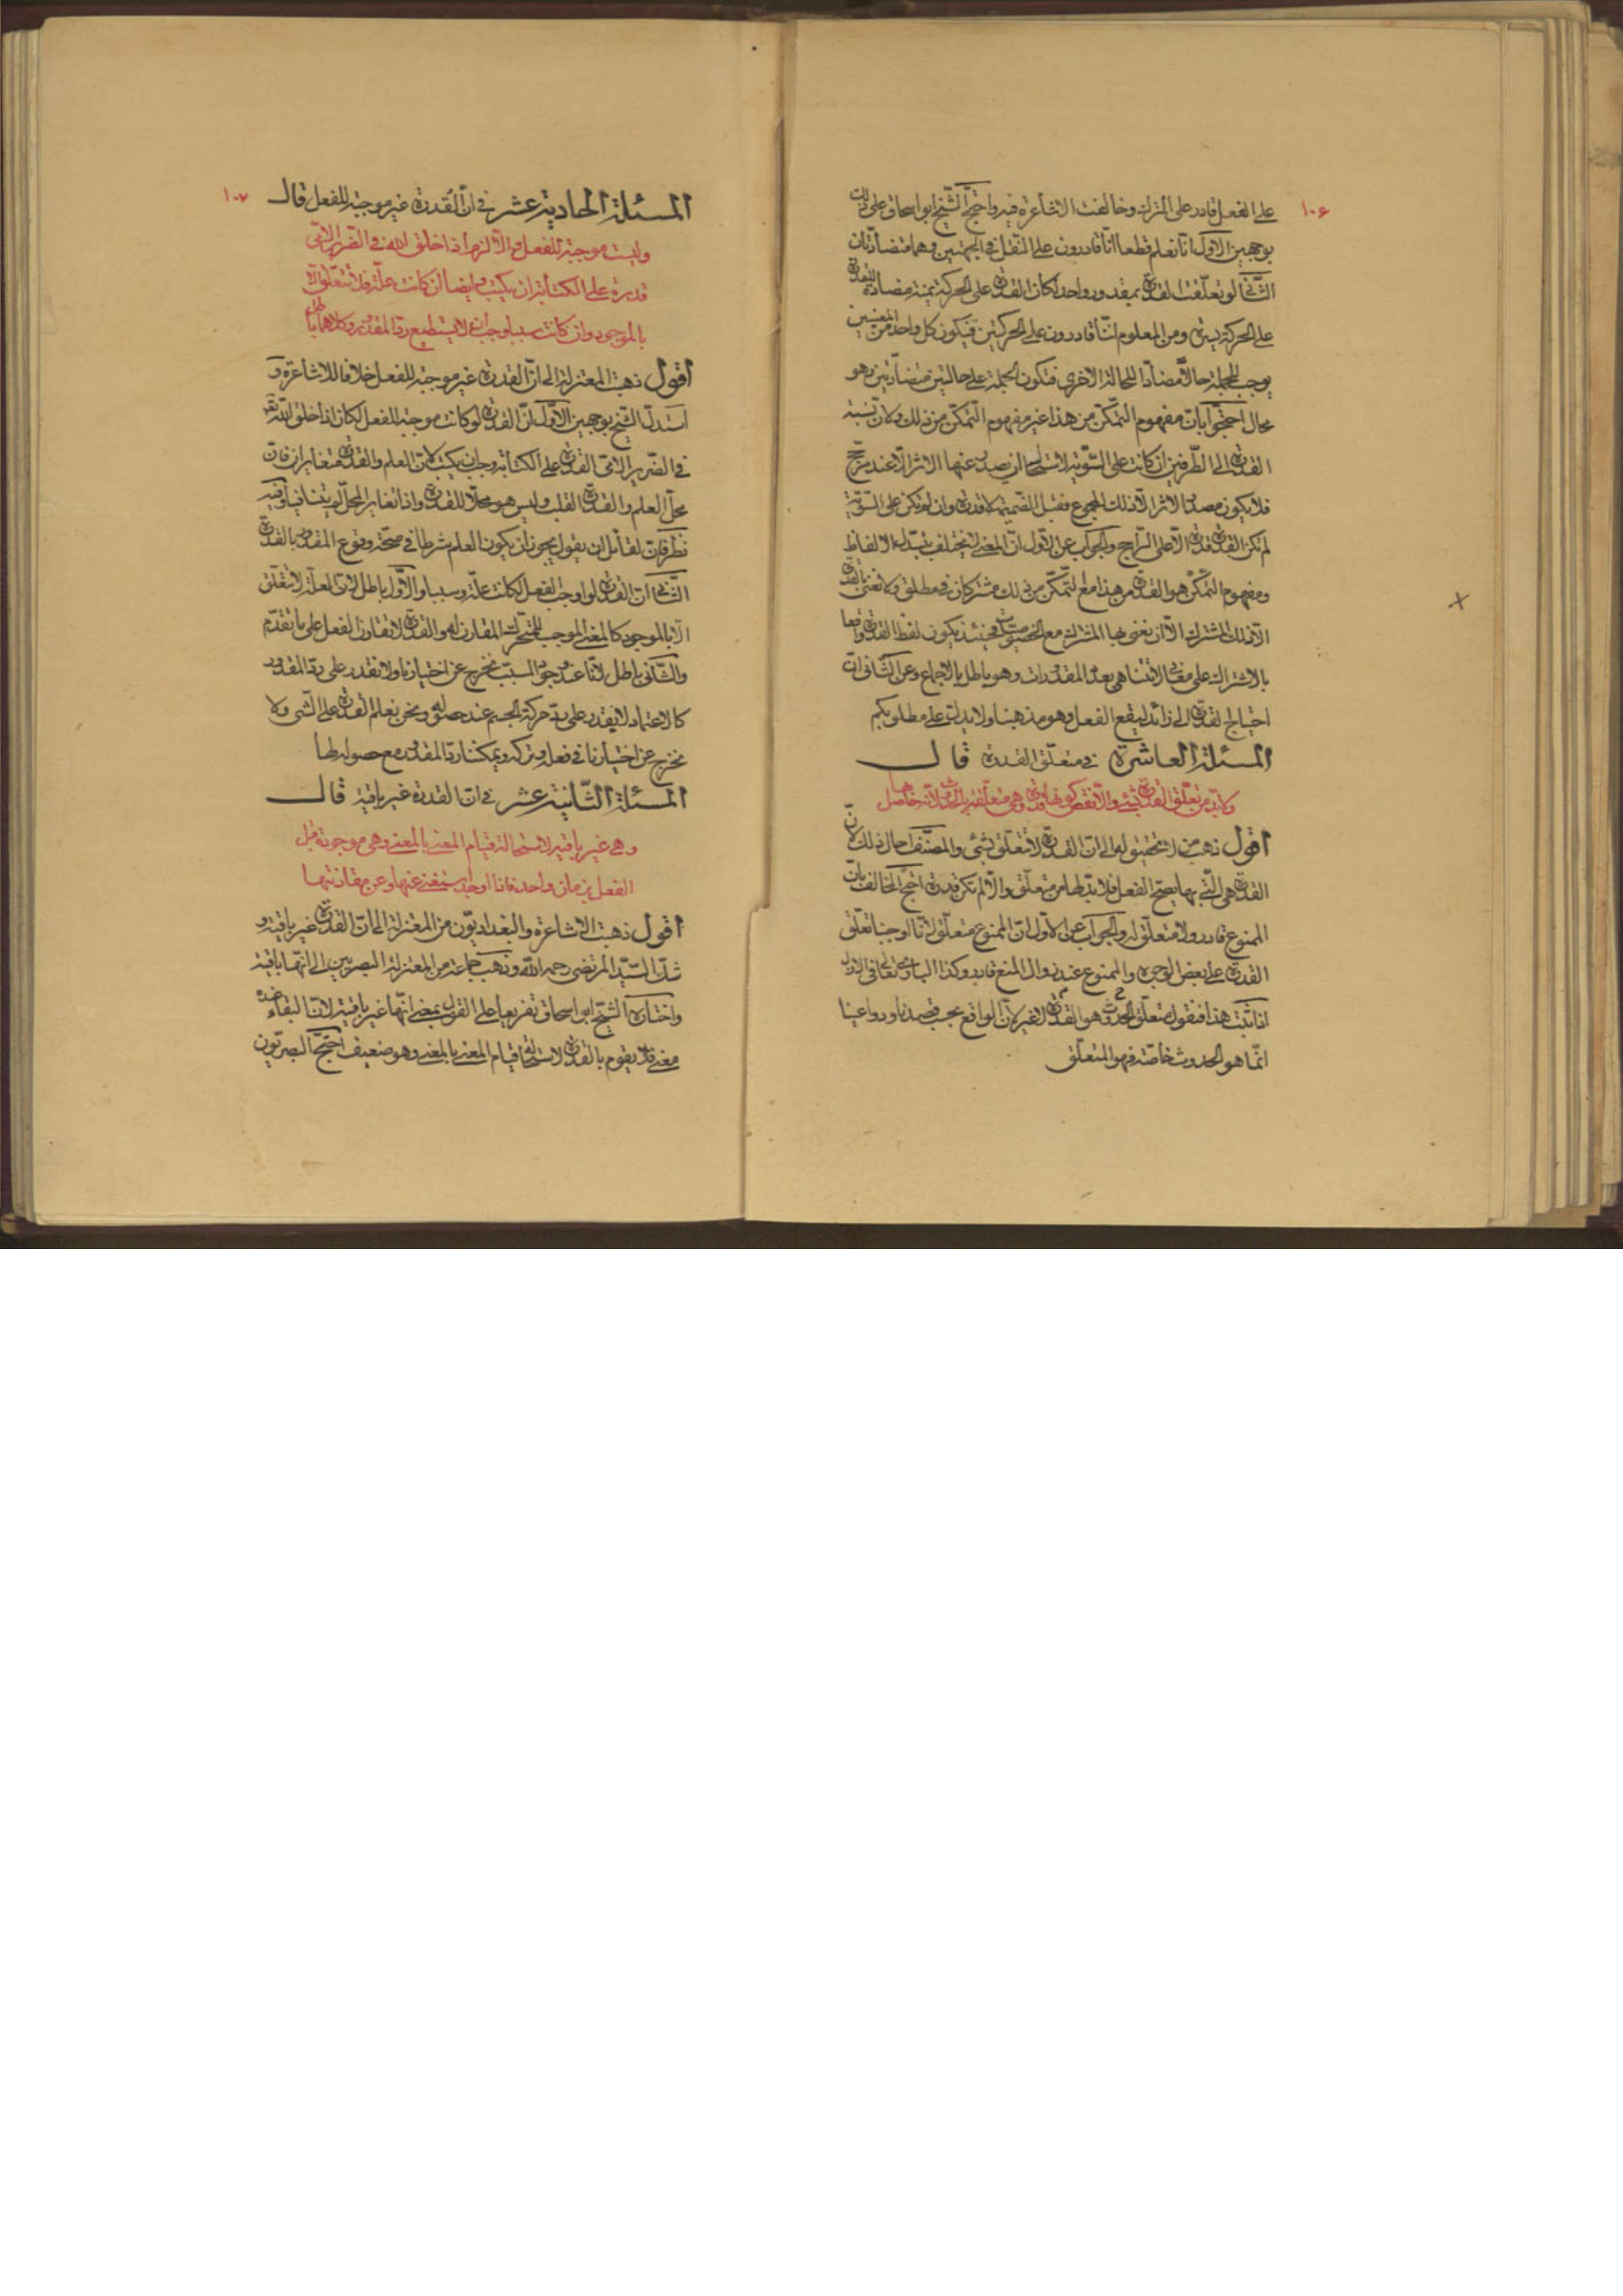 ١٠٦
على الفعل قادر على الترك وخالفت الاشاعرة فيه واحتج الشيخ ابو اسحاق على ذلك
بوجهين الاول انا نعلم قطعا انا قادرون على النقل في الجهتين وهما متضادتان
الثاني لو تعلقت القدرة بمقدور واحد لكان القدرة على الحركة يمنة مضادة للقدرة
على الحركة يسرة ومن المعلوم اننا قادرون على الحركتين فيكون كل واحد من المعنيين
يوجب للجملة حالة مضادة للحالة الاخرى فتكون الجملة على حالتين متضادتين وهو
محال احتجوا بان مفهوم التمكن من هذا غير مفهوم التمكن من ذلك ولان نسبة
القدرة الى الطرفين ان كانت على السوية لاستحال ان يصدر عنها الاثر الا عند مرجح
فلا يكون مصدر الاثر الا ذلك المجموع فقبل الضميمة لا قدرة وان لم تكن على السوية
لم تكن القدرة قدرة الا على الراجح والجواب عن الاول ان المعنى لا يختلف بتبدل الالفاظ
ومفهوم التمكن هو القدرة من هذا مع التمكن من ذلك مشتركان في مطلق ولا نعنى بالقدرة
الا ذلك المشترك الا ان نعنى بها المشترك مع الخصوصيات فحينئذ يكون لفظ القدرة واقعا
بالاشتراك على معان لا تتناهى بعدد المقدورات وهو باطل بالاجماع وعن الثاني ان
احتياج القدرة الى زائد ليقع الفعل وهو مذهبنا ولا يدل على مطلوبكم
المسئلة العاشرة في متعلق القدرة قال
ولا بد من تعلق القدرة بشئ والا نقض كونها قدرة وهي متعلقة بالحدوث لانه خاصل
اقول ذهب من لا تحقيق له الى ان القدرة لا تتعلق بشئ والمصنف احال ذلك لان
القدرة هي التي بها يصح الفعل فلا بد لها من متعلق والا لم تكن قدرة احتج المخالف بان
الممنوع قادر ولا متعلق له والجواب عن الاول ان الممنوع متعلق لانا اوجبنا تعلق
القدرة على بعض الوجوه والممنوع عند زوال المنع قادر وكذا الباري تعالى في الازل
اذا ثبت هذا فنقول متعلق الحدوث هو القدرة لا غير لان الواقع بحسب قصدنا ودواعينا
انما هو الحدوث خاصة فهو المتعلق
١٠٧
المسئلة الحادية عشر في ان القدرة غير موجبة للفعل قال
وليست موجبة للفعل والا لزم اذا خلق الله في الضرير الامى
قدرة على الكتابة ان يكتب وايضا ان كانت علة فلا تتعلق الا
بالموجود وان كانت سببا وجب ان لا يستطيع رد المقدور وكلاهما باطل
اقول ذهبت المعتزلة الى ان القدرة غير موجبة للفعل خلافا للاشاعرة و
استدل الشيخ بوجهين الاول ان القدرة لو كانت موجبة للفعل لكان اذا خلق الله تعالى
في الضرير الامى القدرة على الكتابة وجب ان يكتب لان العلم والقدرة متغايران فان
محل العلم والقدرة القلب وليس هو محلا للقدرة واذا تغاير المحل لم يتنافيا وفيه
نظر فان لقائل ان يقول يجوز ان يكون العلم شرطا في صحة وقوع المقدور بالقدرة
الثاني ان القدرة لو اوجبت الفعل لكانت علة او سببا والاول باطل لان العلة لا تتعلق
الا بالموجود كالمعنى الموجب للمتحرك المقارن له والقدرة لا تقارن الفعل على ما تقدم
والثاني باطل لانا عند وجود السبب نخرج عن اختيارنا ولا نقدر على رد المقدور
كالاعتماد لا يقدر على رد حركة الجسم عند حصوله ونحن نعلم القدرة على الشئ ولا
نخرج عن اختيارنا في فعله وتركه ويمكننا رد المقدور مع حصوله لها
المسئلة الثانية عشر في ان القدرة غير باقية قال
وهي غير باقية لاستحالة قيام المعنى بالمعنى وهي موجودة قبل
الفعل بزمان واحد فاذا اوجد يستغنى عنها وعن مقارنتها
اقول ذهبت الاشاعرة والبغداديون من المعتزلة الى ان القدرة غير باقية و
شك السيد المرتضى رحمه الله وذهب جماعة من المعتزلة البصريين الى انها باقية
واختاره الشيخ ابو اسحاق تفريعا على القول بمعنى انها غير باقية لان البقاء عنده
معنى فلا يقوم بالقدرة لاستحالة قيام المعنى بالمعنى وهو ضعيف احتج البصريون